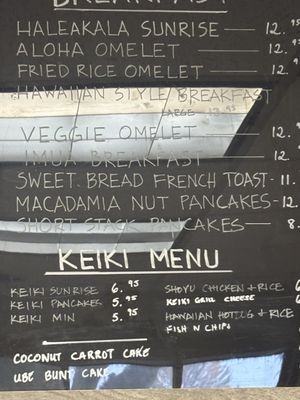 BREAKFAST
HALEAKALA SUNRISE — 12.95
ALOHA OMELET — 12.
FRIED RICE OMELET — 12.
HAWAIIAN STYLE BREAKFAST
LARGE 12.95
VEGGIE OMELET — 12.
IMUA BREAKFAST — 12
SWEET BREAD FRENCH TOAST - 11.
MACADAMIA NUT PANCAKES - 12.
SHORT STACK PANCAKES — 8.
KEIKI MENU
KEIKI SUNRISE 6.95
KEIKI PANCAKES 5.95
KEIKI MIN 5.95
SHOYU CHICKEN + RICE 6
KEIKI GRILL CHEESE
HAWAIIAN HOTDOG + RICE
FISH N CHIPS
COCONUT CARROT CAKE
UBE BUNT CAKE